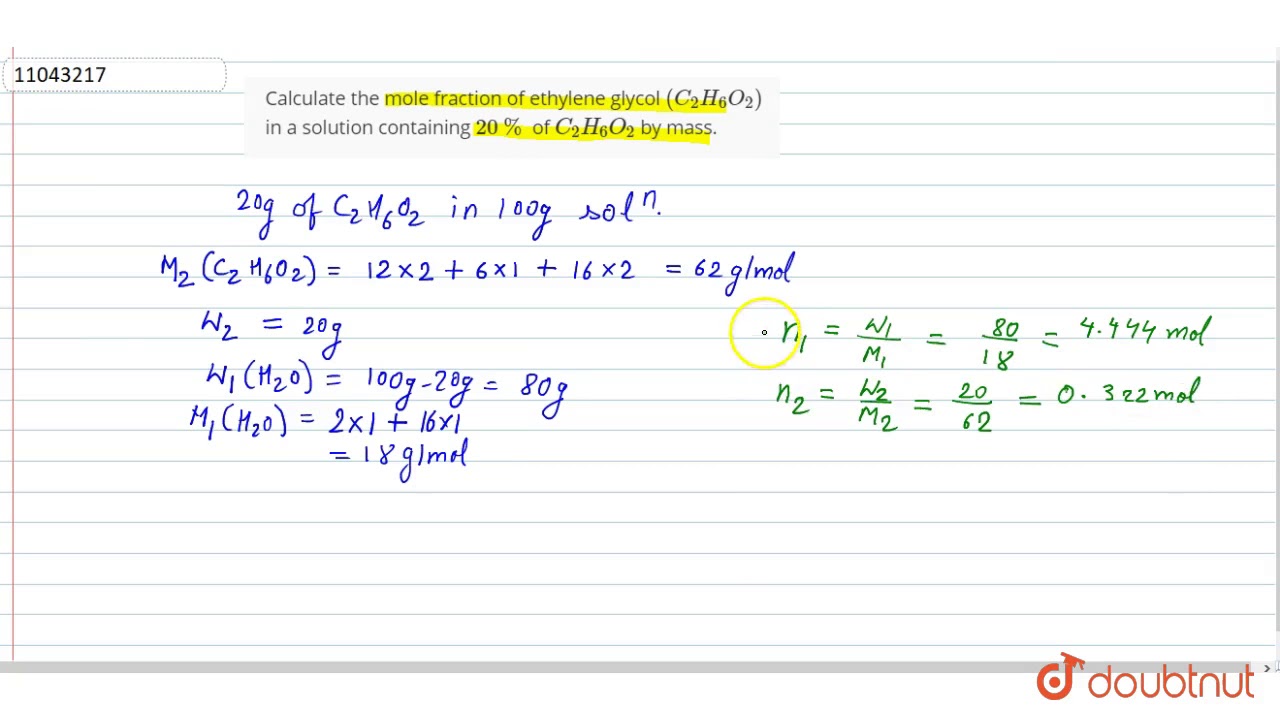 11043217
Calculate the mole fraction of ethylene glycol (C₂H₆O₂)
in a solution containing 20 % of C₂H₆O₂ by mass.
20g of C₂H₆O₂ in 100g solⁿ.
M₂ (C₂H₆O₂) = 12×2 + 6×1 + 16×2 = 62 g/mol
W₂ = 20g
W₁ (H₂O) = 100g - 20g = 80g
M₁ (H₂O) = 2×1 + 16×1
= 18 g/mol
n₁ = W₁/M₁ = 80/18 = 4.444 mol
n₂ = W₂/M₂ = 20/62 = 0.322 mol
doubtnut